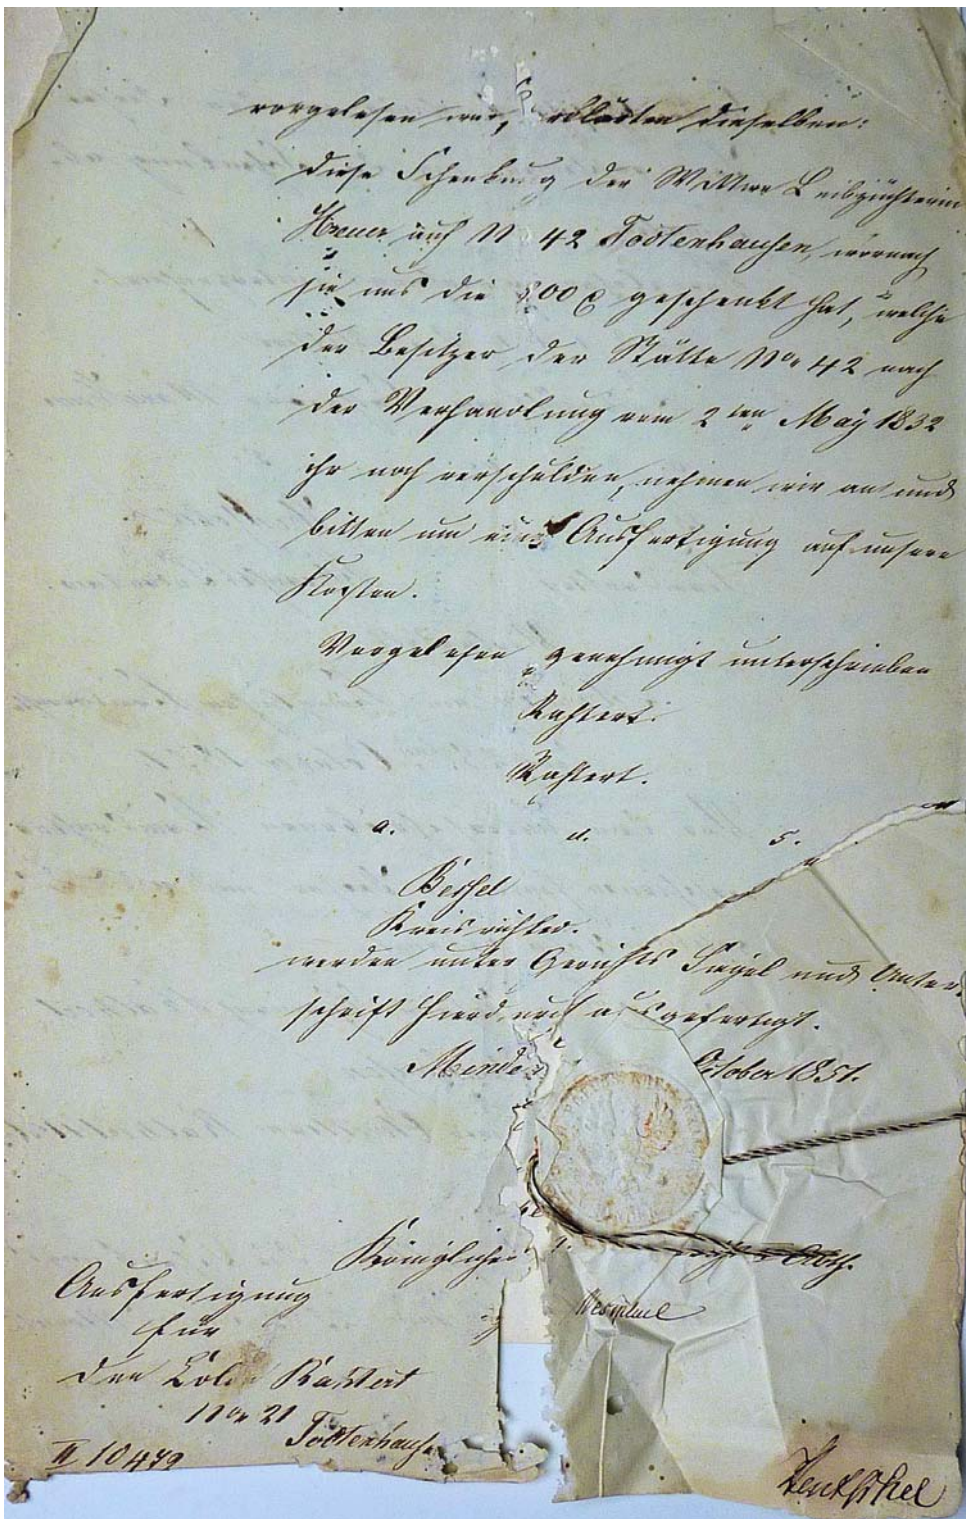 vorgelesen war, erklärten dieselben:
diese Schenkung der Wittwe Leibzüchterin
Heuer auf No 42 Todtenhausen, wonach
sie uns die 800 geschenkt hat, welche
der Besitzer der Stätte No 42 nach
der Verhandlung vom 2ten May 1832
ihr noch verschulden, nehmen wir an und
bitten um eine Ausfertigung auf unsere
Kosten.
Vorgelesen genehmigt unterschrieben
Rastert.
Rastert.
a. u. s.
Bessel
Kreisrichter.
werden unter Gerichts Siegel und Unter-
schrift hierdurch ausgefertigt.
Minde October 1851.
Königliches Abth.
Ausfertigung
für
den Colon Rastert
No 21
Todtenhausen
II 10479